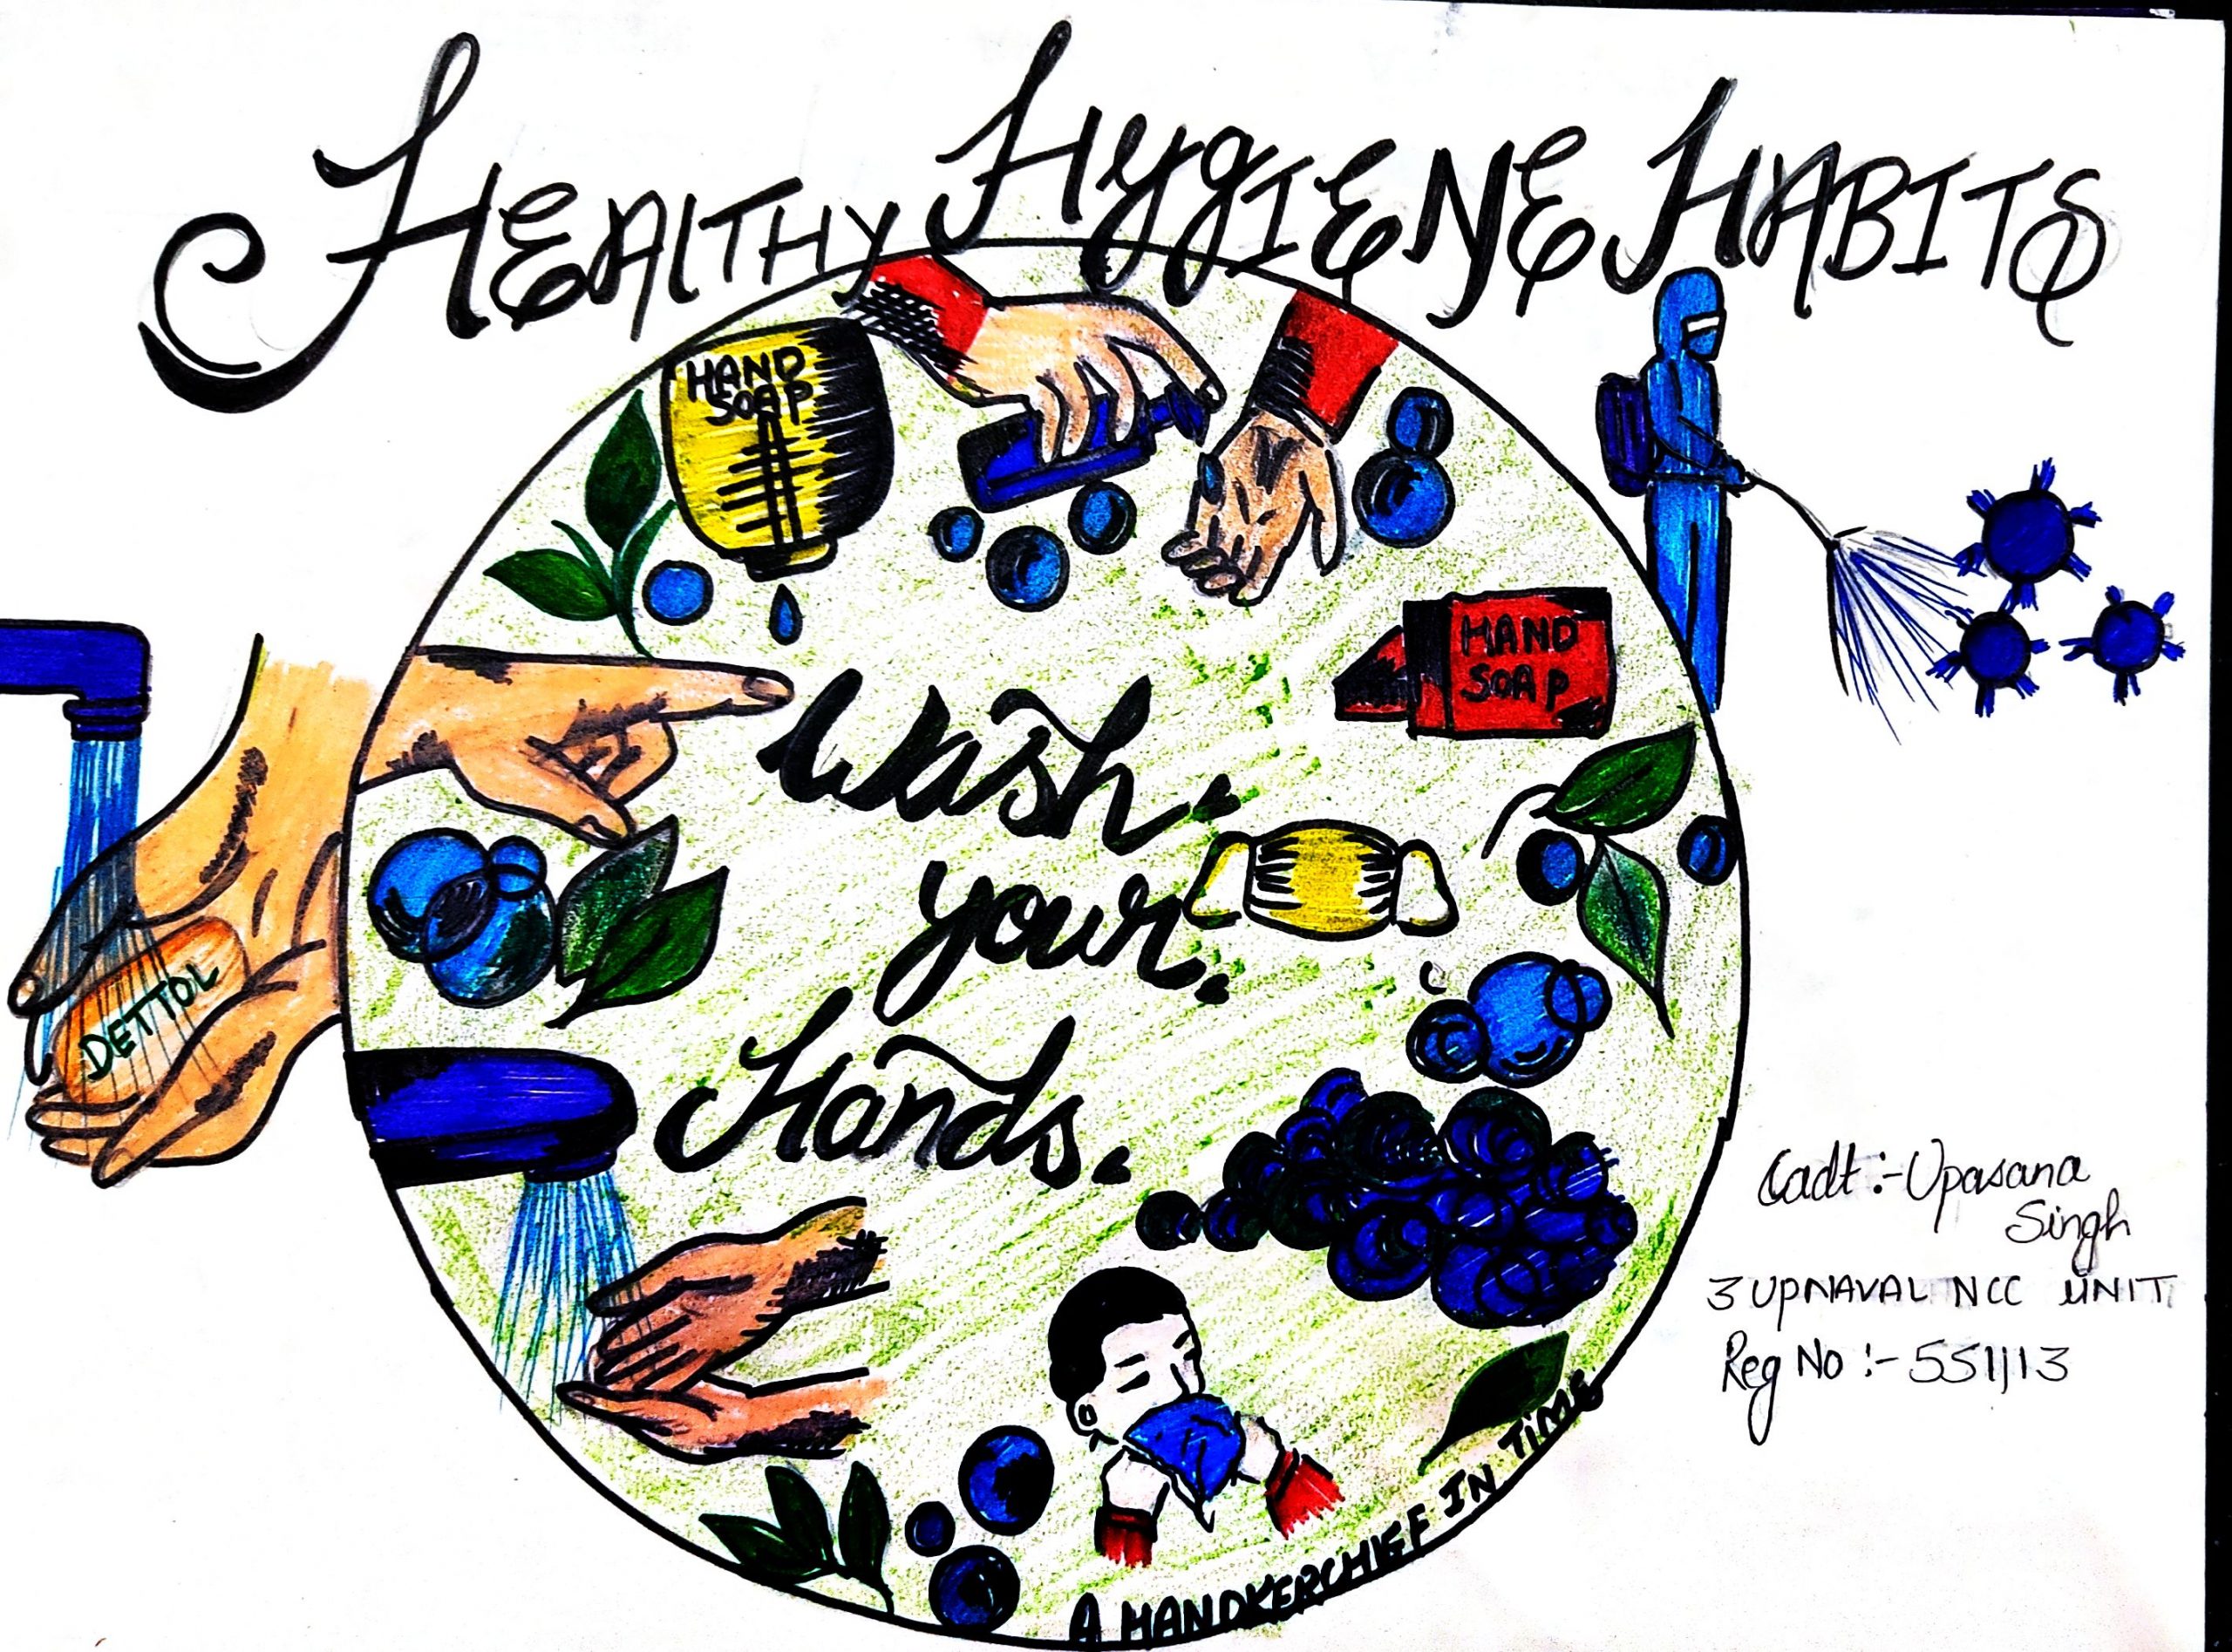 HEALTHY HygIENE HABITS
HAND
SOAP
HAND
SOAP
Wash
your
Hands.
DETTOL
Cadt :- Upasana
Singh
3 UP NAVAL NCC UNIT
Reg No :- 551113
A HANDKERCHIEF IN TIME